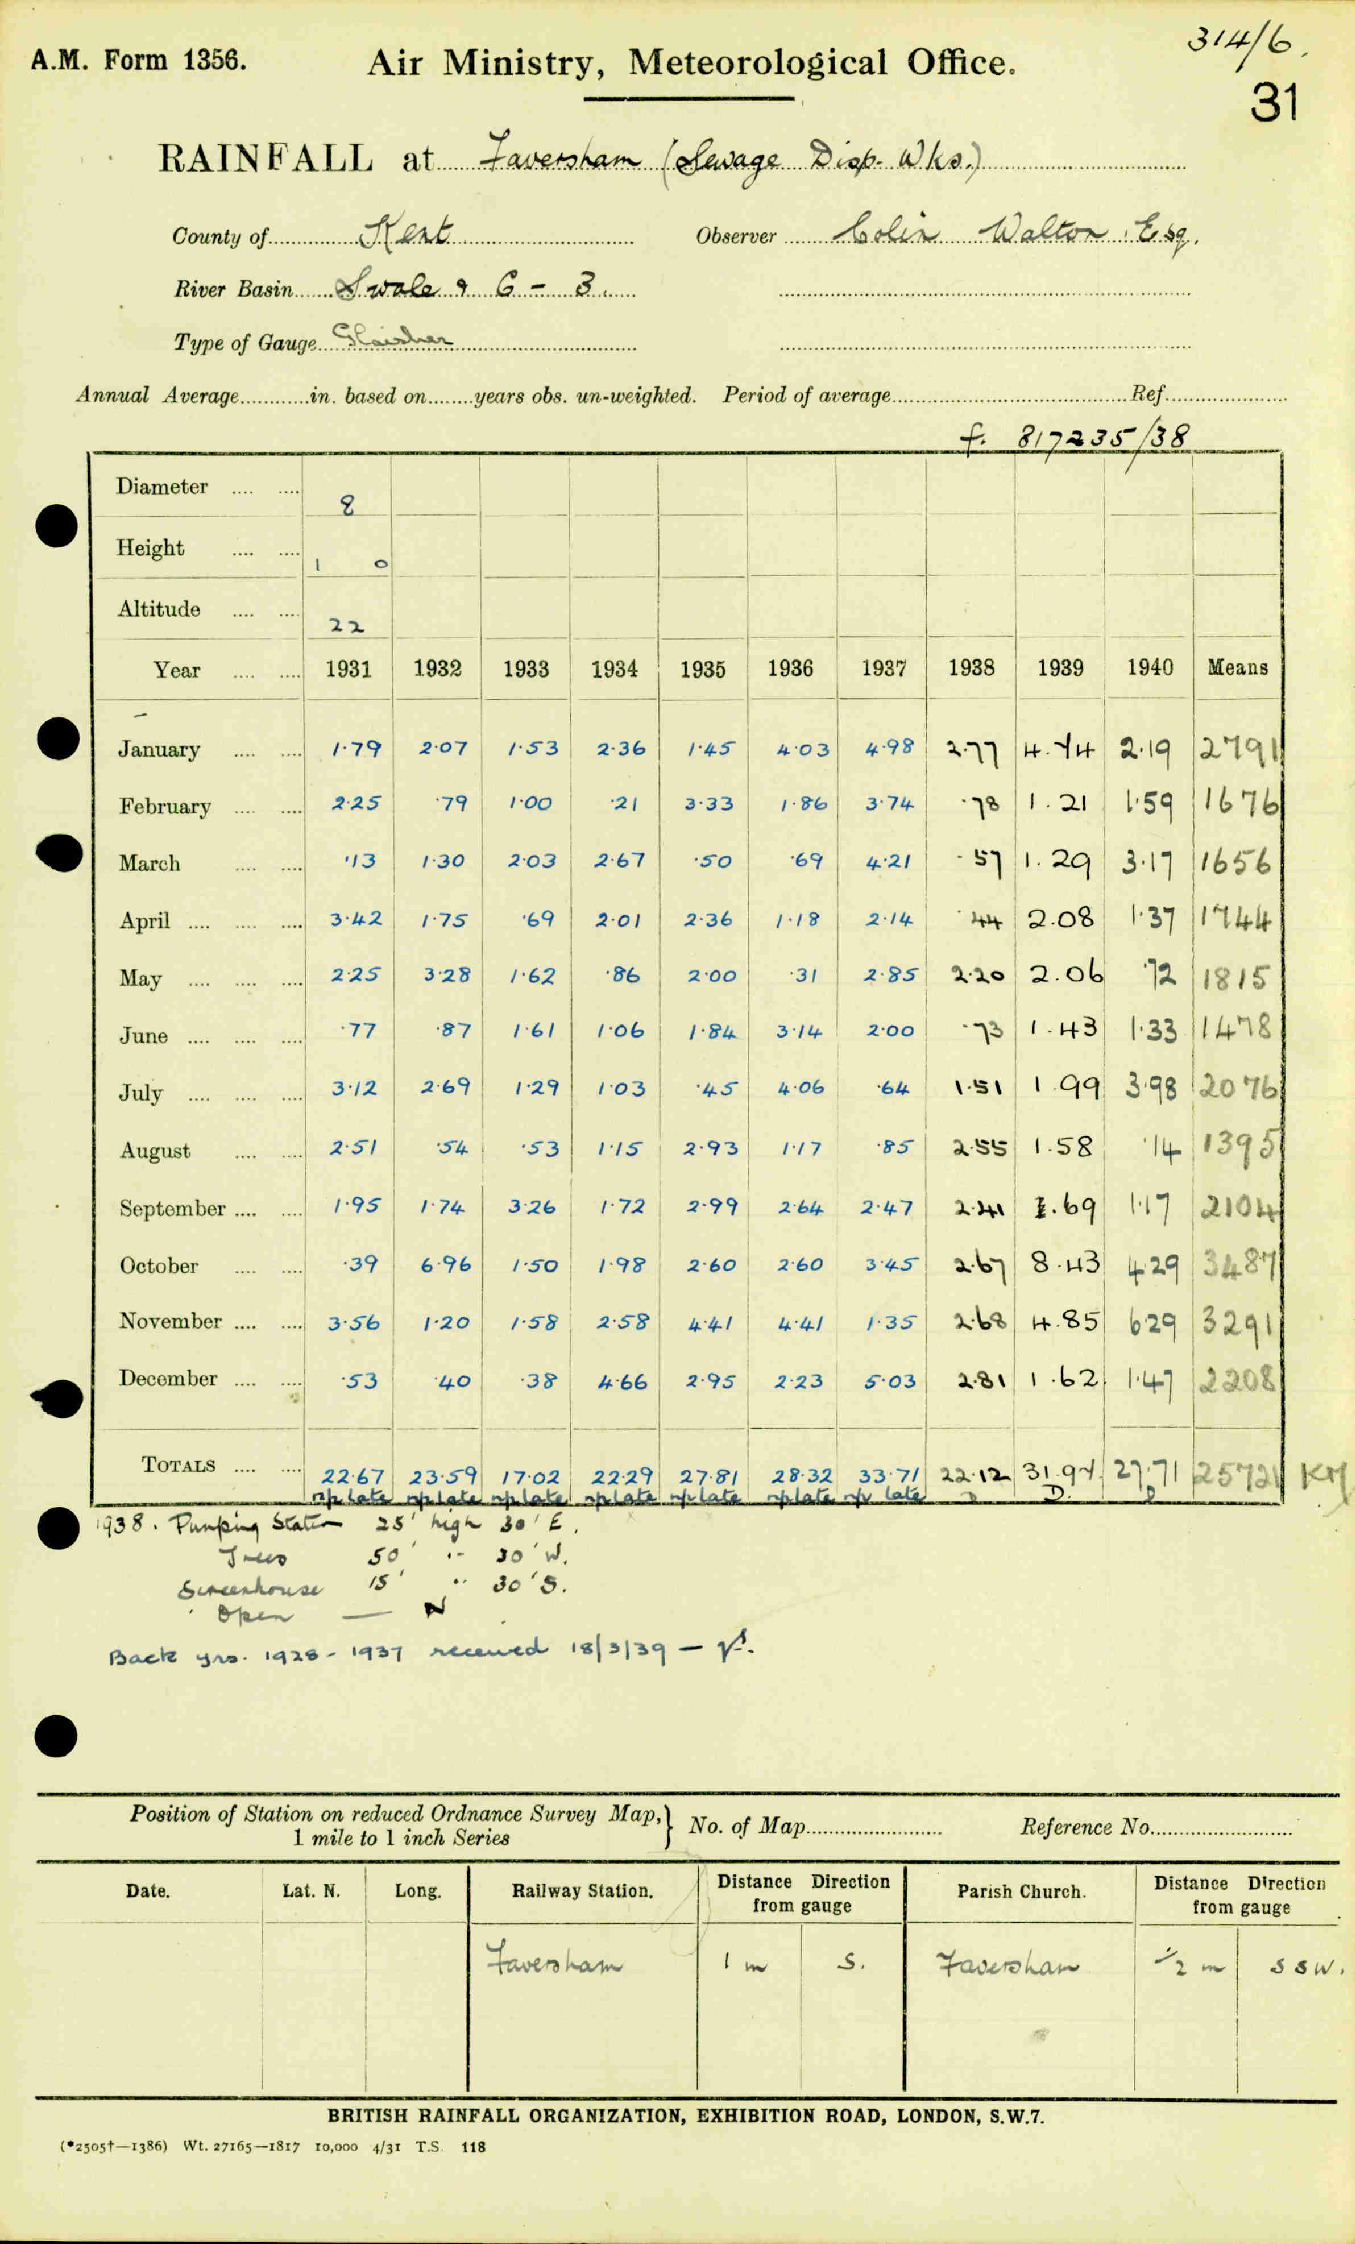 314/6.
A.M. Form 1356. Air Ministry, Meteorological Office.
31
RAINFALL at Faversham (Sewage Disp. Wks.)
County of Kent Observer Colin Walton Esq.
River Basin Swale & 6 - 3.
Type of Gauge Glaisher
Annual Average in. based on years obs. un-weighted. Period of average Ref.
f. 817235/38
Diameter 8
Height 1 0
Altitude 22
Year 1931 1932 1933 1934 1935 1936 1937 1938 1939 1940 Means
January 1·79 2·07 1·53 2·36 1·45 4·03 4·98 2·77 4.74 2·19 2791
February 2·25 ·79 1·00 ·21 3·33 1·86 3·74 ·78 1.21 1·59 1676
March ·13 1·30 2·03 2·67 ·50 ·69 4·21 ·57 1.29 3·17 1656
April 3·42 1·75 ·69 2·01 2·36 1·18 2·14 ·44 2.08 1·37 1744
May 2·25 3·28 1·62 ·86 2·00 ·31 2·85 2·20 2.06 ·72 1815
June ·77 ·87 1·61 1·06 1·84 3·14 2·00 ·73 1.43 1·33 1478
July 3·12 2·69 1·29 1·03 ·45 4·06 ·64 1·51 1 99 3·98 2076
August 2·51 ·54 ·53 1·15 2·93 1·17 ·85 2·55 1.58 ·14 1395
September 1·95 1·74 3·26 1·72 2·99 2·64 2·47 2·41 1.69 1·17 2104
October ·39 6·96 1·50 1·98 2·60 2·60 3·45 2·67 8.43 4·29 3487
November 3·56 1·20 1·58 2·58 4·41 4·41 1·35 2·68 4.85 6·29 3291
December ·53 ·40 ·38 4·66 2·95 2·23 5·03 2·81 1.62 1·47 2208
TOTALS 22·67 23·59 17·02 22·29 27·81 28·32 33·71 22·12 31.97 27·71 25721 KM
np late np late np late np late np late np late np late D D. D
1938. Pumping Station 25' high 30' E.
Trees 50' " 30' W.
Screenhouse 15' " 30' S.
Open — N
Back yrs. 1928 - 1937 received 18/3/39 —
Position of Station on reduced Ordnance Survey Map, 1 mile to 1 inch Series } No. of Map Reference No.
Date. Lat. N. Long. Railway Station. Distance Direction from gauge Parish Church. Distance Direction from gauge
Faversham 1 m S. Faversham 1/2 m SSW.
BRITISH RAINFALL ORGANIZATION, EXHIBITION ROAD, LONDON, S.W.7.
(*2505†—1386) Wt. 27165—1817 10,000 4/31 T.S. 118